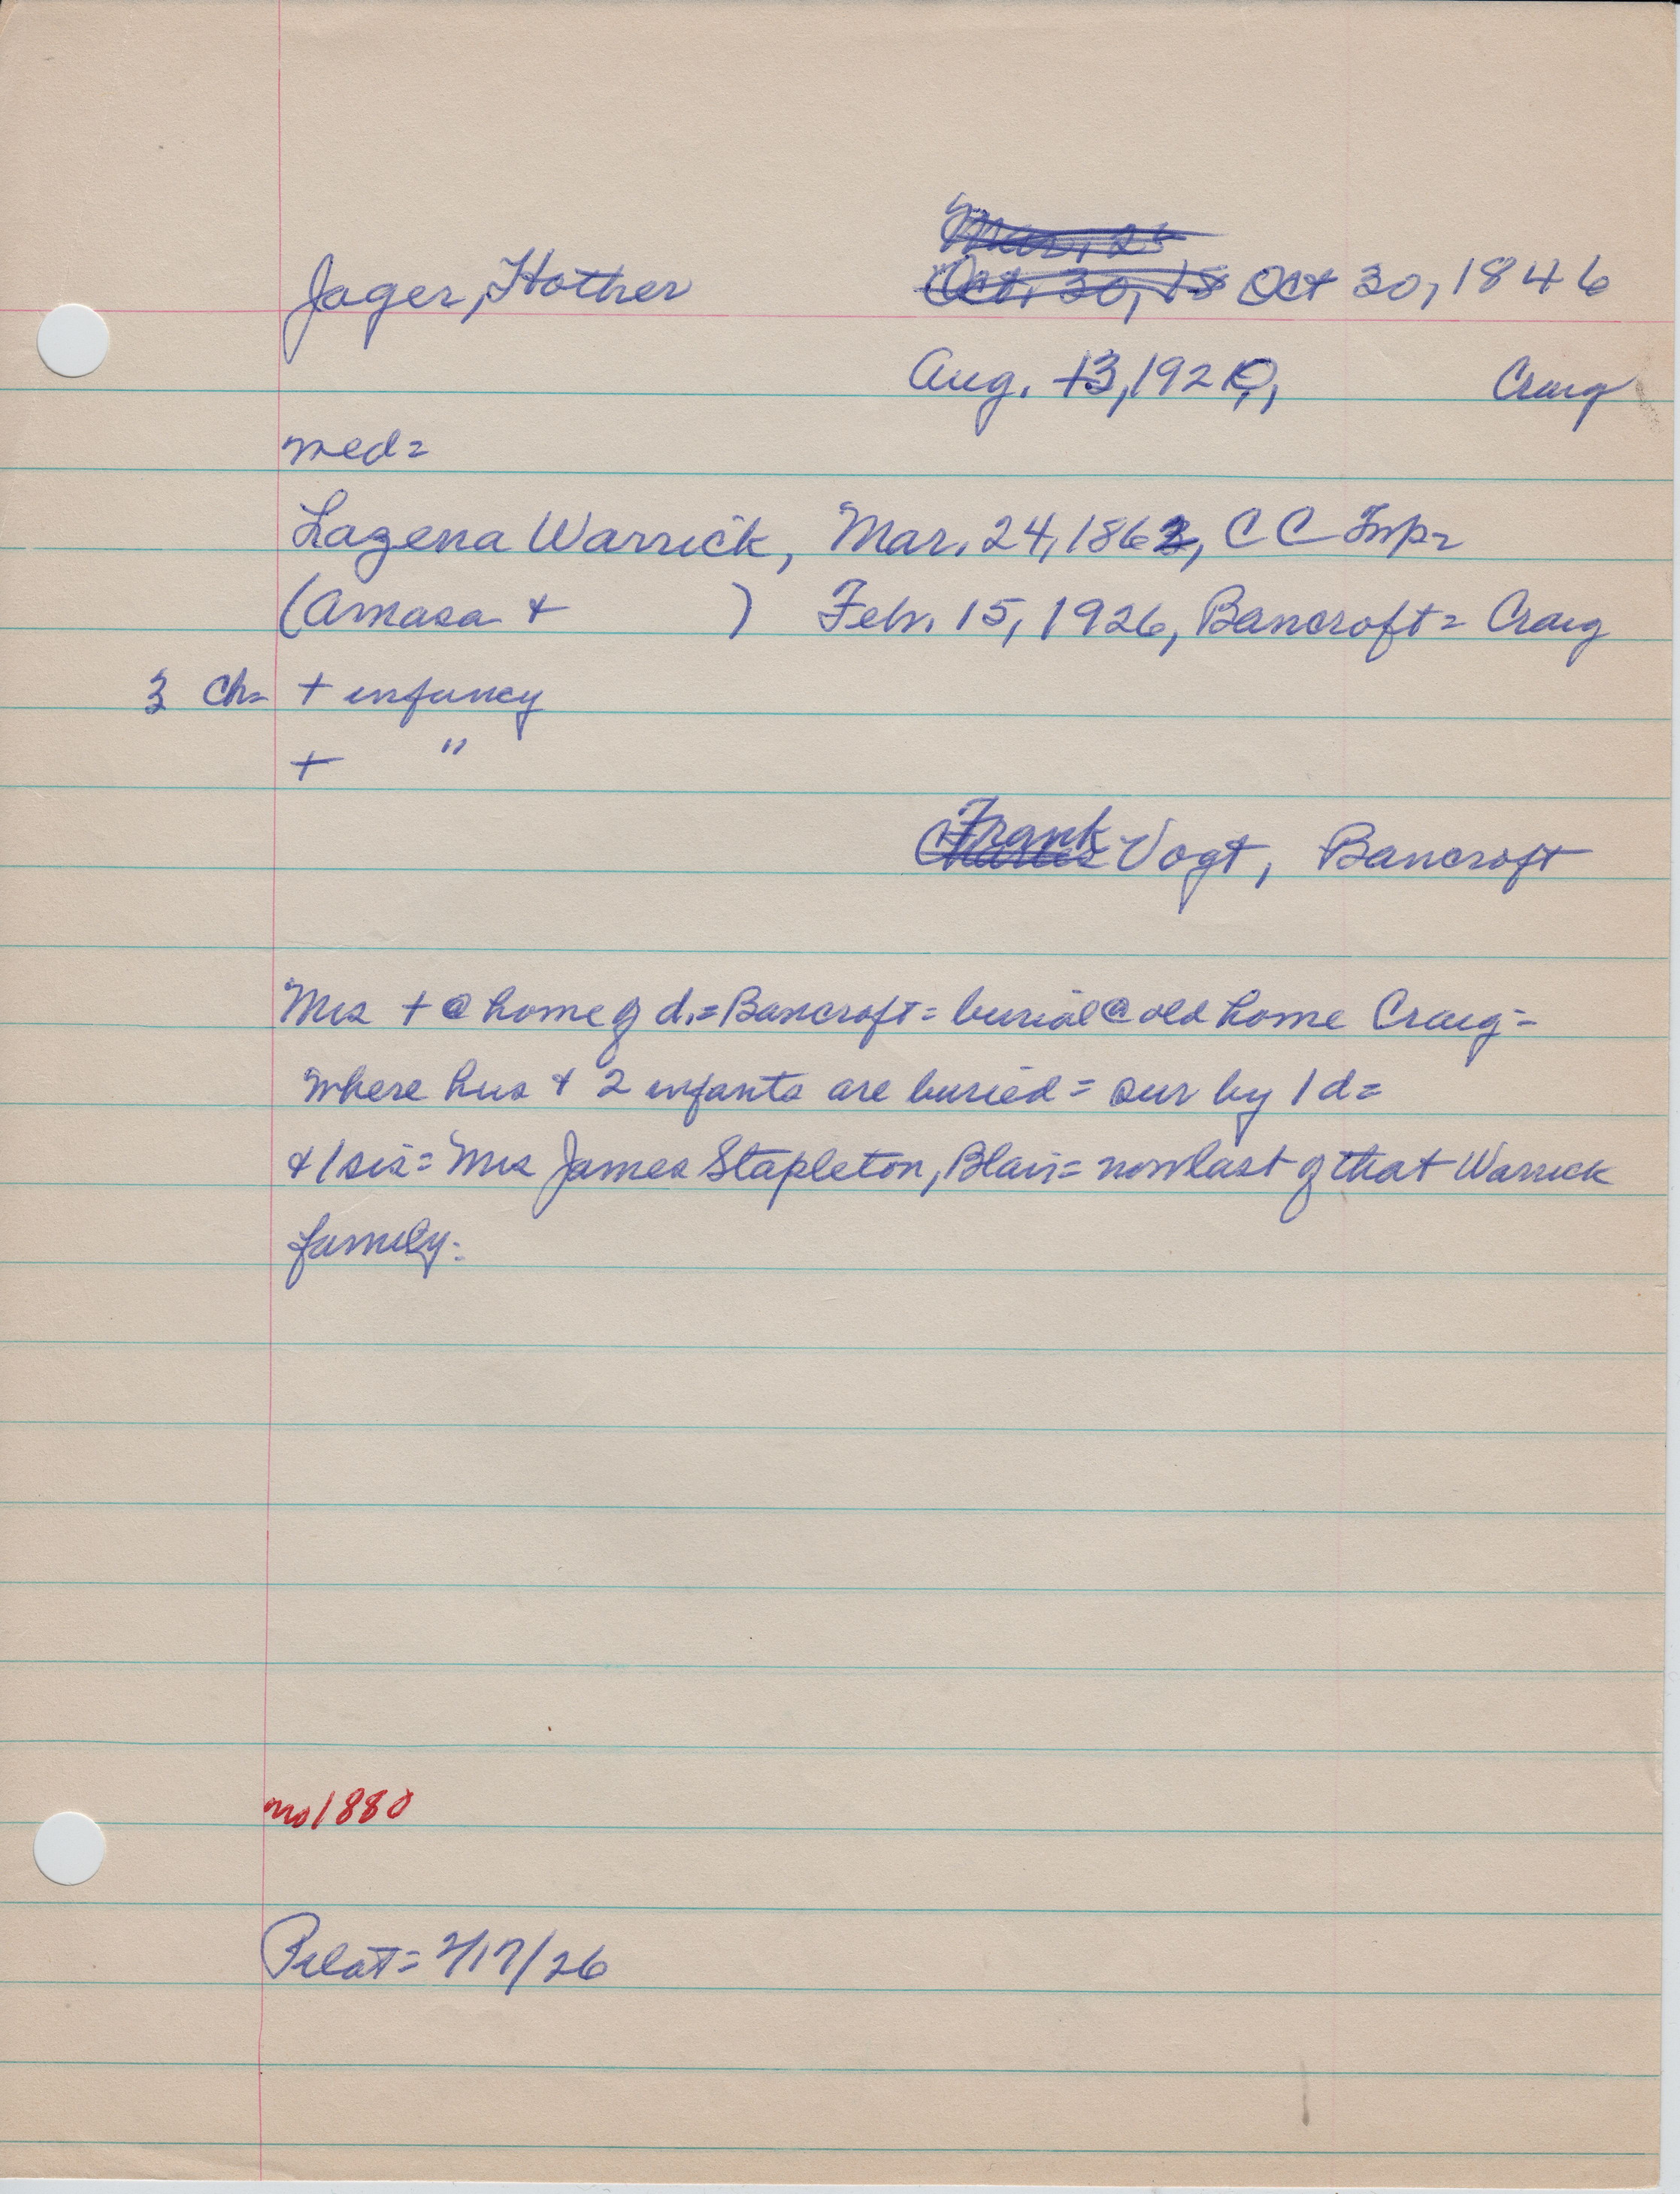 Mar. 2
Jager, Hother Oct. 30, 18 Oct 30, 1846
Aug. 13, 1920, Craig
med=
Lazena Warrick, Mar. 24, 1862, CC Twp=
(Amasa + ) Feb. 15, 1926, Bancroft= Craig
3 Ch= + infancy
+ "
Frank
Vogt, Bancroft
Mrs + @ home of d.= Bancroft= burial @ old home Craig=
where hus + 2 infants are buried= sur by 1 d=
+ 1 sis= Mrs James Stapleton, Blair= now last of that Warrick
family=
no 1880
Pilot= 2/17/26